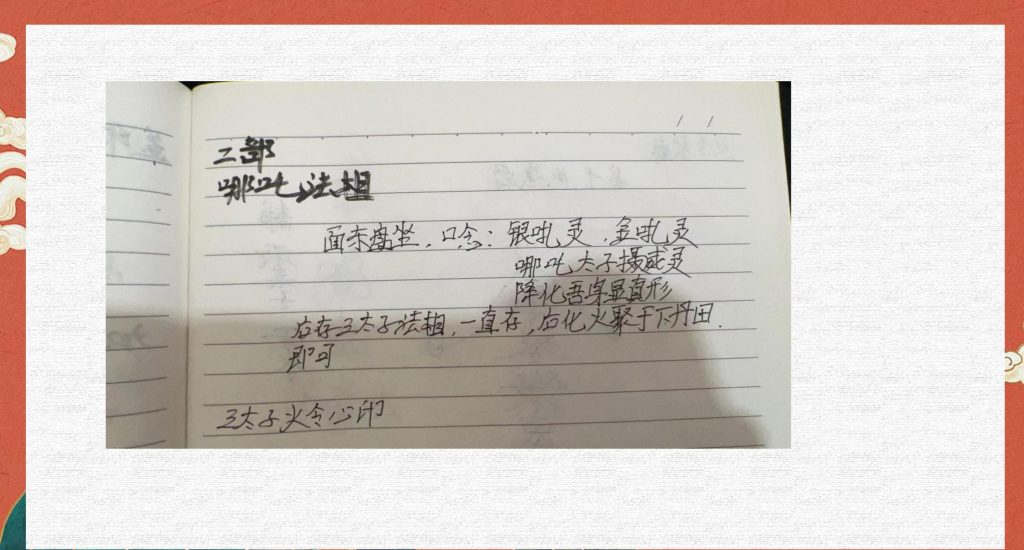 二部
哪吒法相
面东盘坐，口念：银吒灵．金吒灵
哪吒太子摄威灵
降化吾身显真形
后存三太子法相，一直存，后化火聚于下丹田．
即可
三太子火令心印